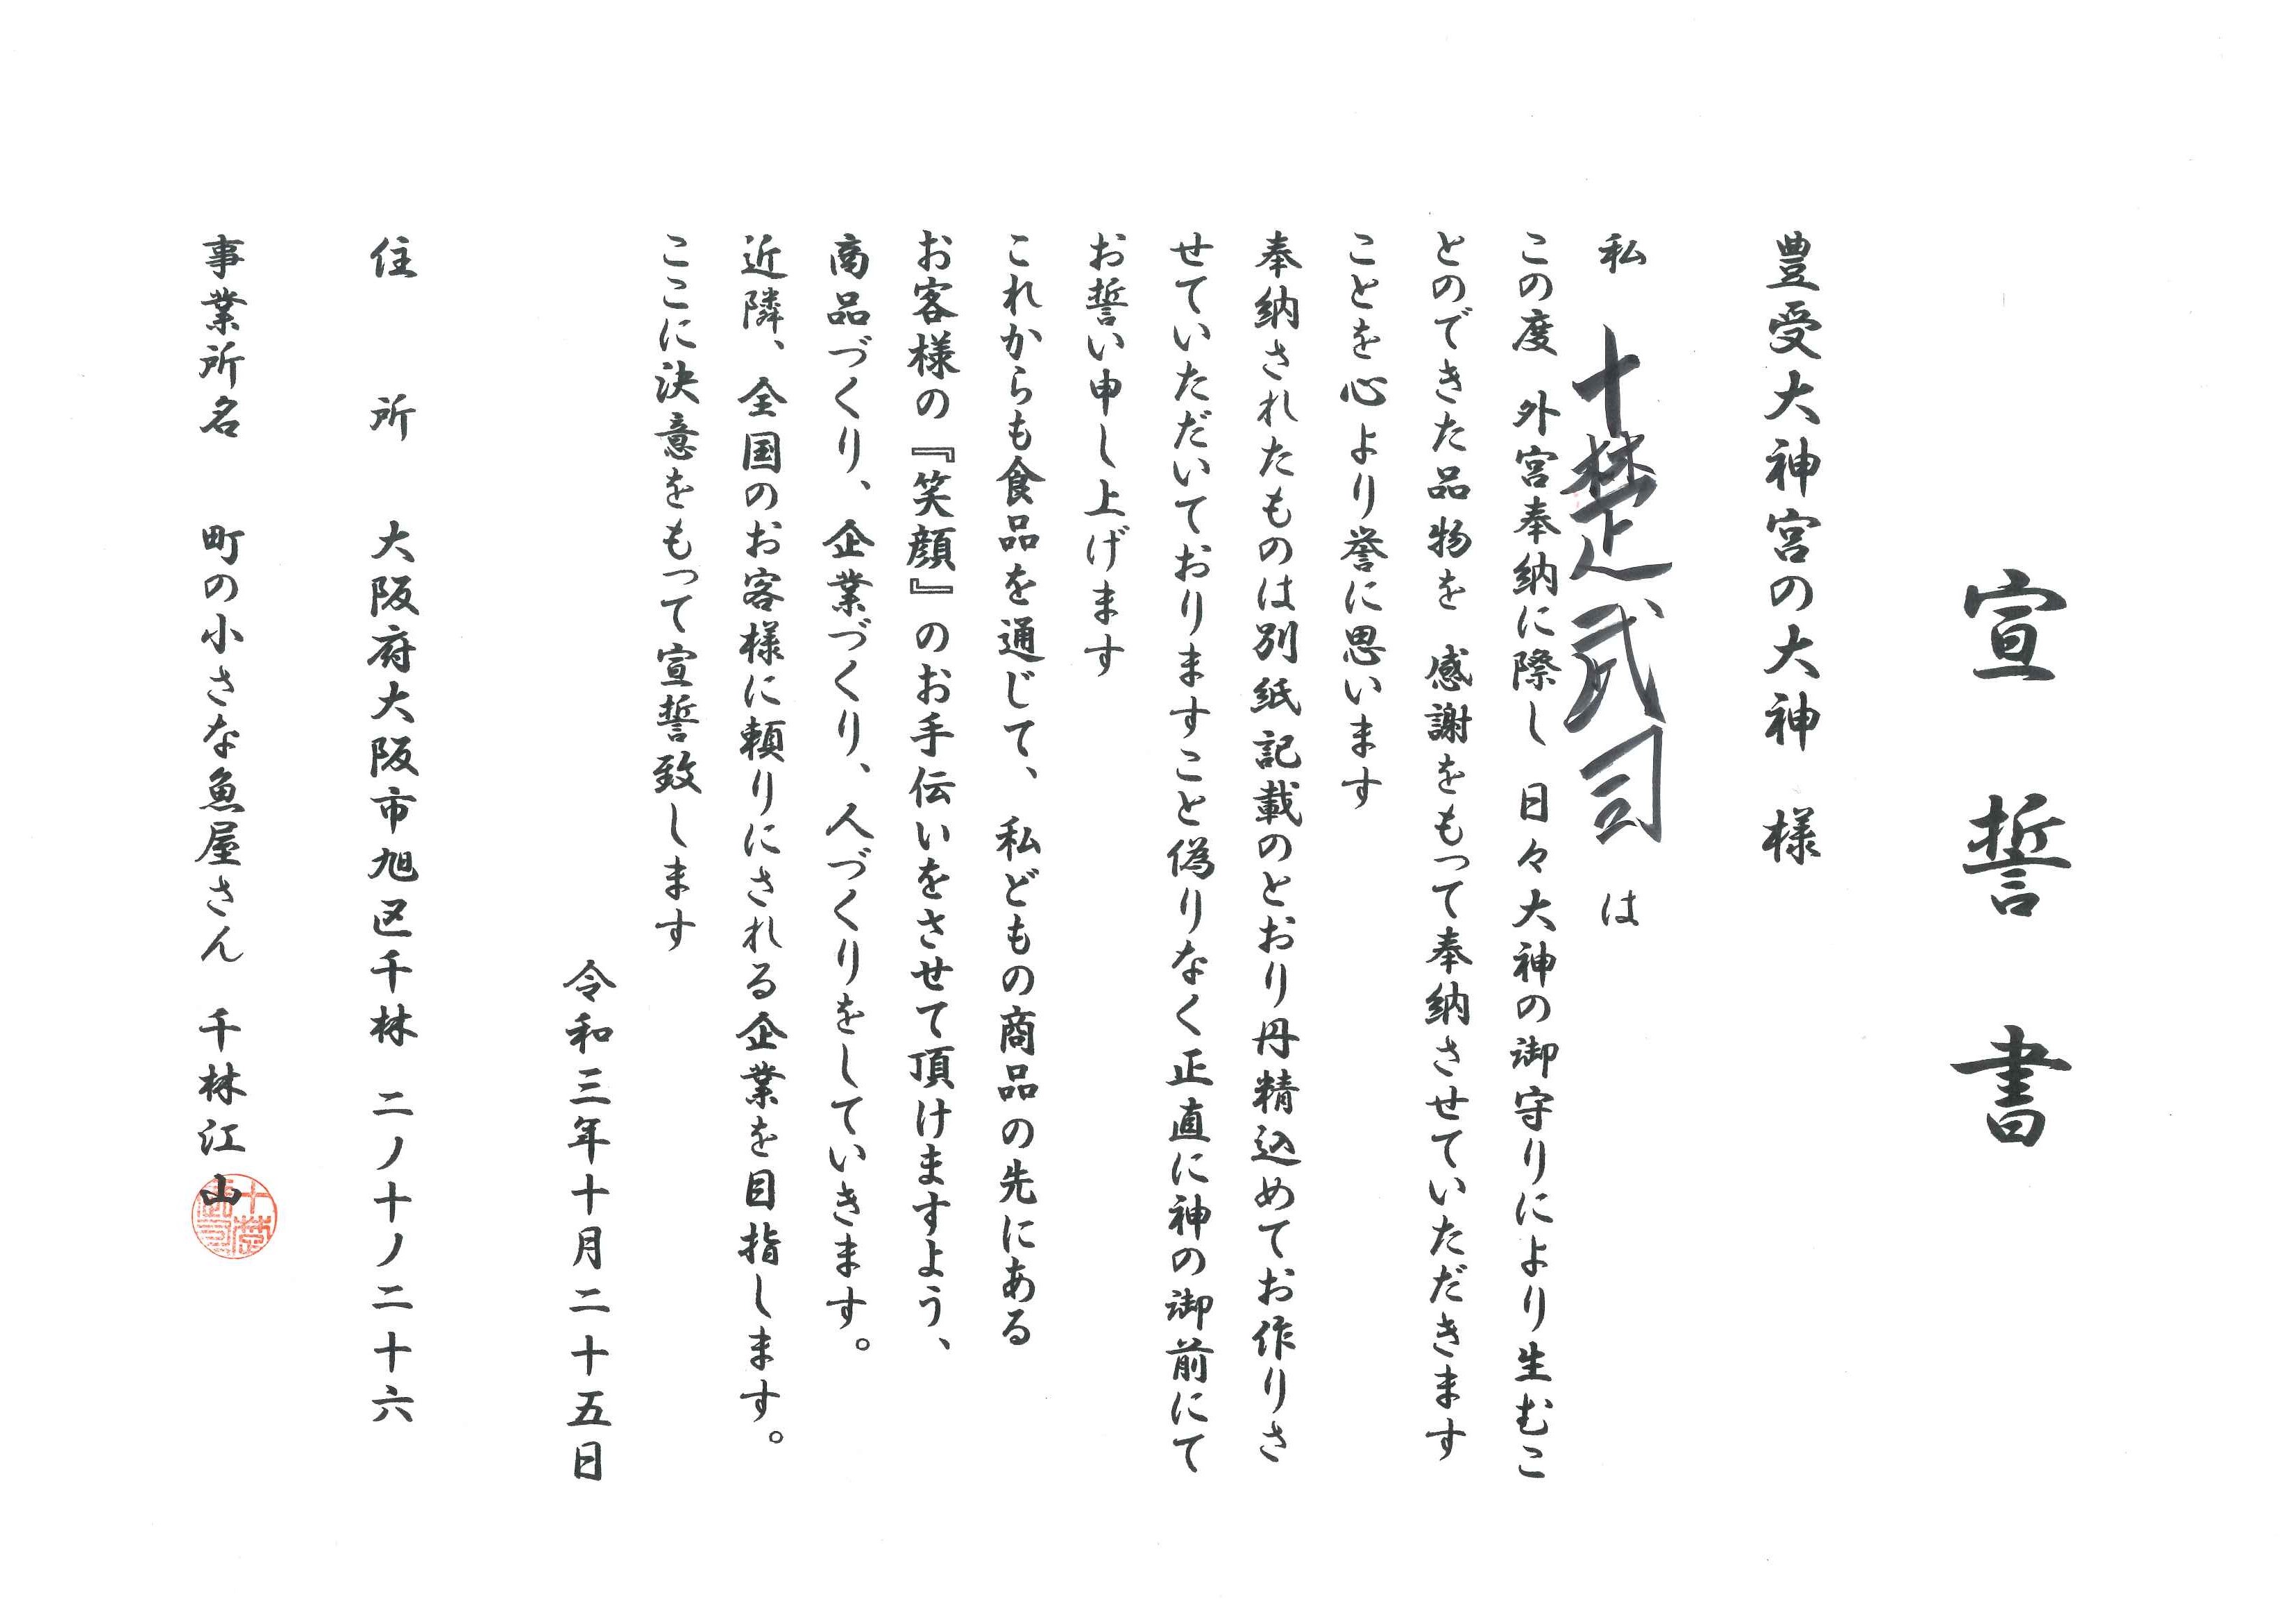 宣誓書
豊受大神宮の大神　様
私　十楚武司　は
この度　外宮奉納に際し　日々大神の御守りにより生むこ
とのできた品物を　感謝をもって奉納させていただきます
ことを心より誉に思います
奉納されたものは別紙記載のとおり丹精込めてお作りさ
せていただいておりますこと偽りなく正直に神の御前にて
お誓い申し上げます
これからも食品を通じて、私どもの商品の先にある
お客様の『笑顔』のお手伝いをさせて頂けますよう、
商品づくり、企業づくり、人づくりをしていきます。
近隣、全国のお客様に頼りにされる企業を目指します。
ここに決意をもって宣誓致します
令和三年十月二十五日
住　所　大阪府大阪市旭区千林　二ノ十ノ二十六
事業所名　町の小さな魚屋さん　千林江山